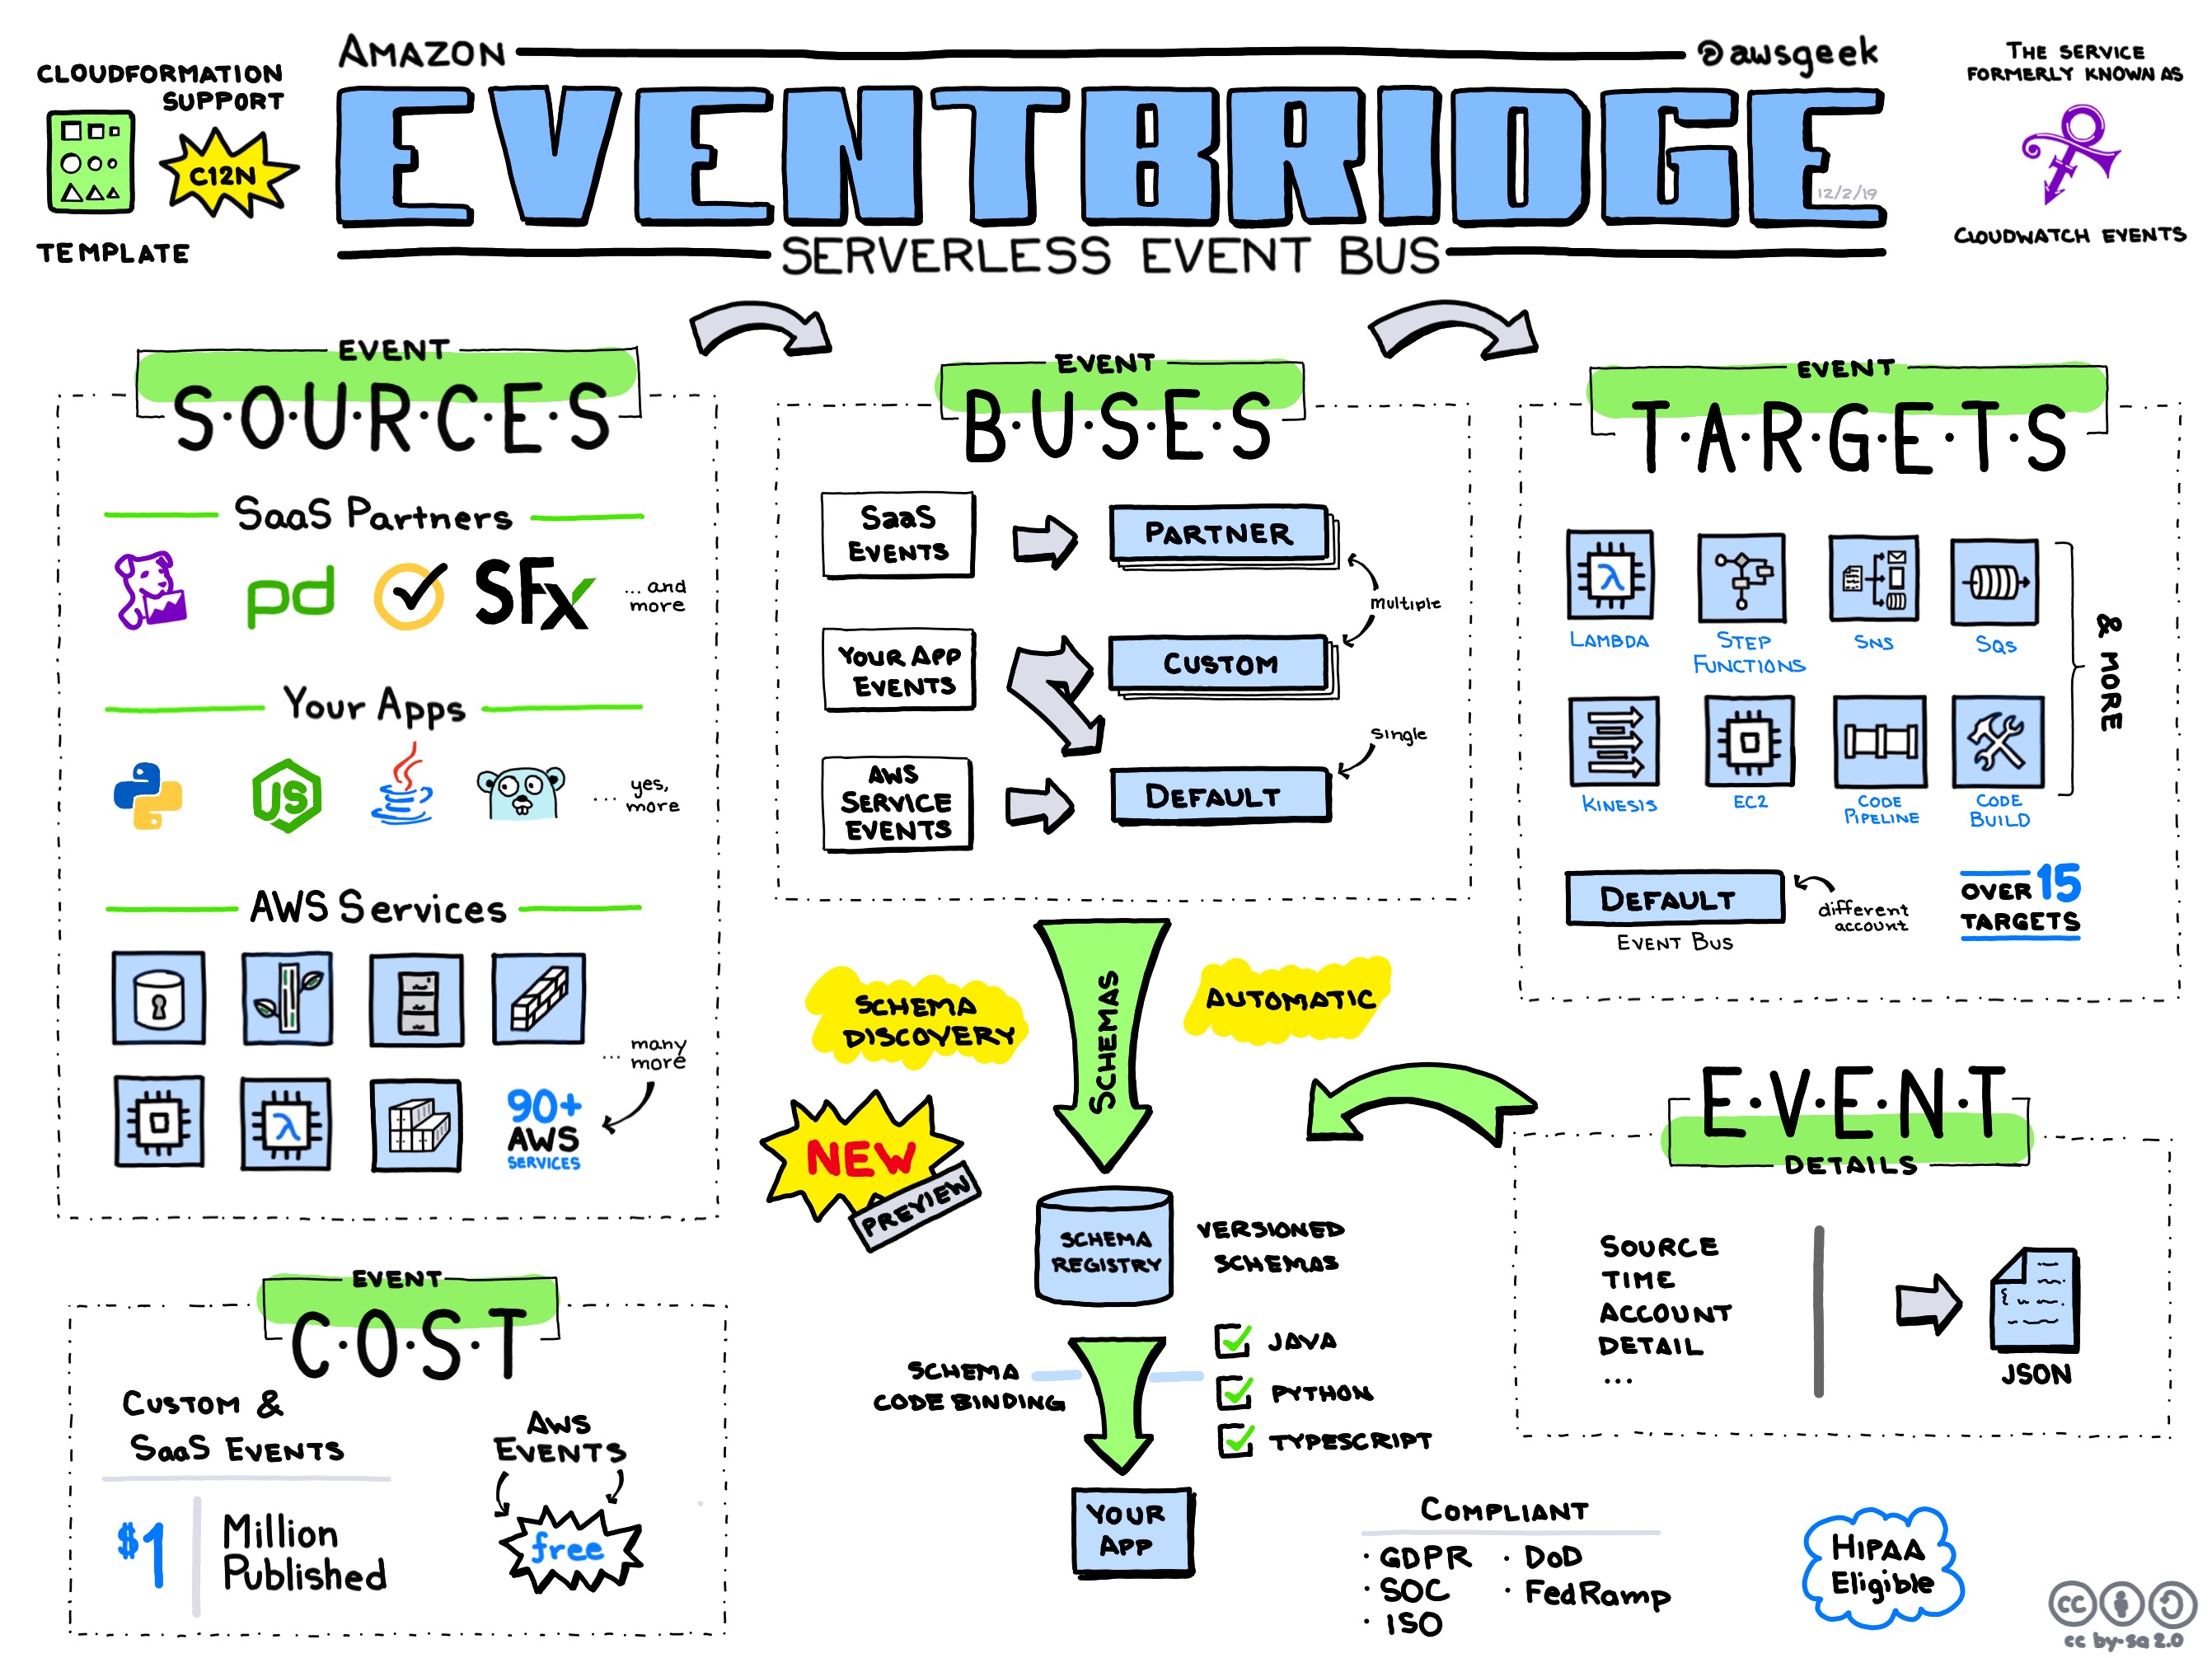 CLOUDFORMATION
SUPPORT
C12N
TEMPLATE
AMAZON
@awsgeek
EVENTBRIDGE
12/2/19
SERVERLESS EVENT BUS
THE SERVICE
FORMERLY KNOWN AS
CLOUDWATCH EVENTS
EVENT
S·O·U·R·C·E·S
SaaS Partners
pd
SFx
... and
more
Your Apps
JS
... yes,
more
AWS Services
... many
more
λ
90+
AWS
SERVICES
EVENT
B·U·S·E·S
SaaS
EVENTS
PARTNER
multiple
YOUR APP
EVENTS
CUSTOM
single
AWS
SERVICE
EVENTS
DEFAULT
EVENT
T·A·R·G·E·T·S
λ
LAMBDA
STEP
FUNCTIONS
SNS
SQS
KINESIS
EC2
CODE
PIPELINE
CODE
BUILD
& MORE
DEFAULT
EVENT BUS
different
account
OVER 15
TARGETS
SCHEMA
DISCOVERY
SCHEMAS
AUTOMATIC
NEW
PREVIEW
SCHEMA
REGISTRY
VERSIONED
SCHEMAS
SCHEMA
CODE BINDING
JAVA
PYTHON
TYPESCRIPT
YOUR
APP
E·V·E·N·T
DETAILS
SOURCE
TIME
ACCOUNT
DETAIL
...
JSON
EVENT
C·O·S·T
CUSTOM &
SaaS EVENTS
$1
Million
Published
AWS
EVENTS
free
COMPLIANT
· GDPR
· SOC
· ISO
· DoD
· FedRamp
HIPAA
Eligible
cc
cc by-sa 2.0